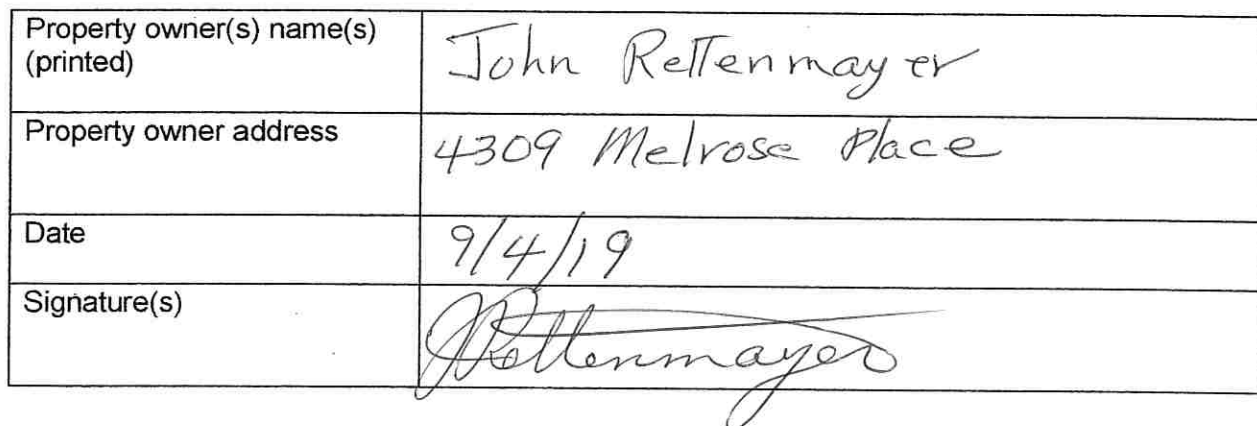 Property owner(s) name(s)
(printed)
John Rettenmayer
Property owner address
4309 Melrose Place
Date
9/4/19
Signature(s)
JRettenmayer